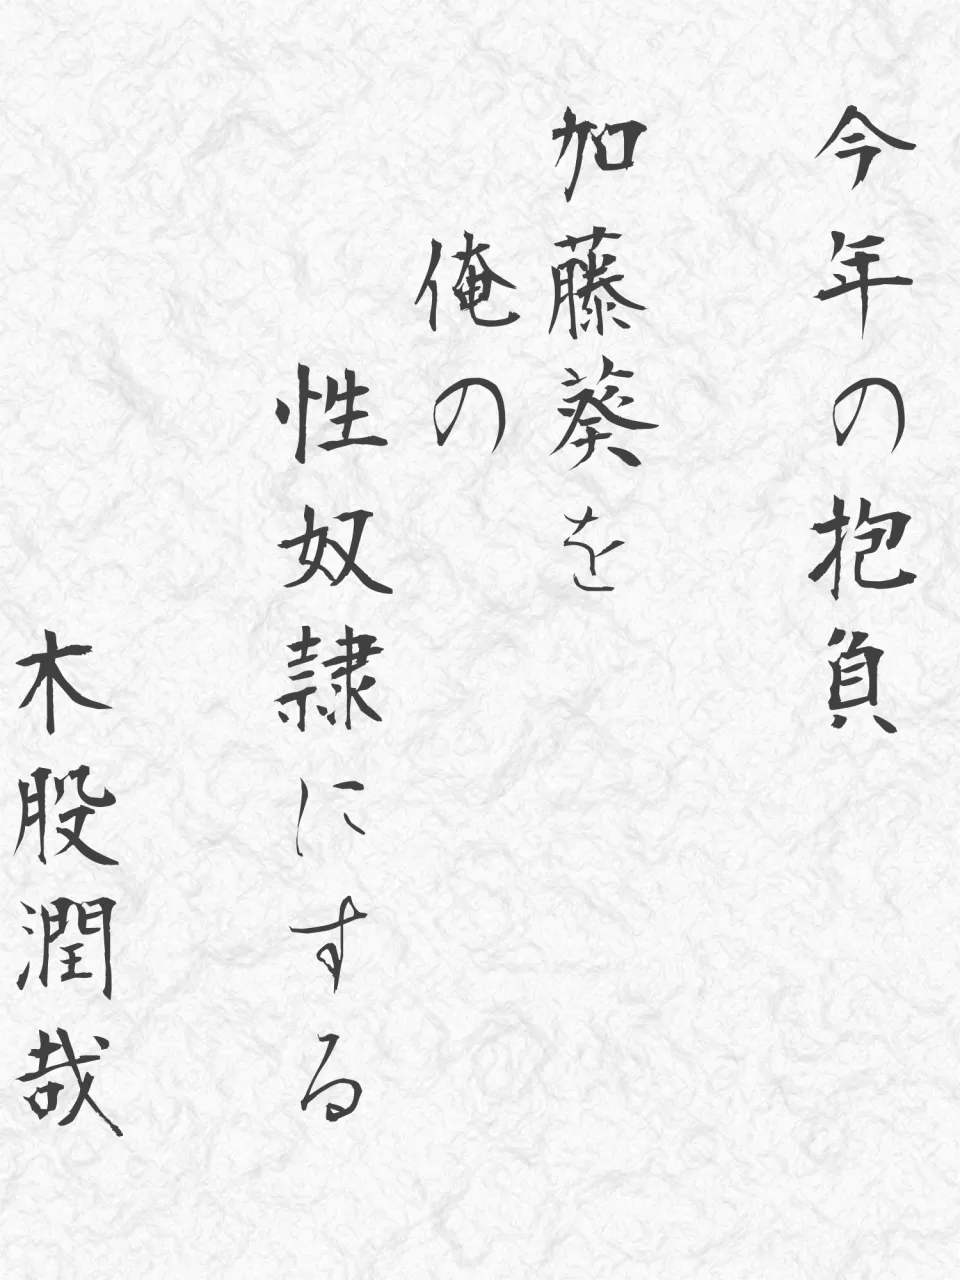 今年の抱負
加藤葵を
俺の
性奴隷にする
木股潤哉